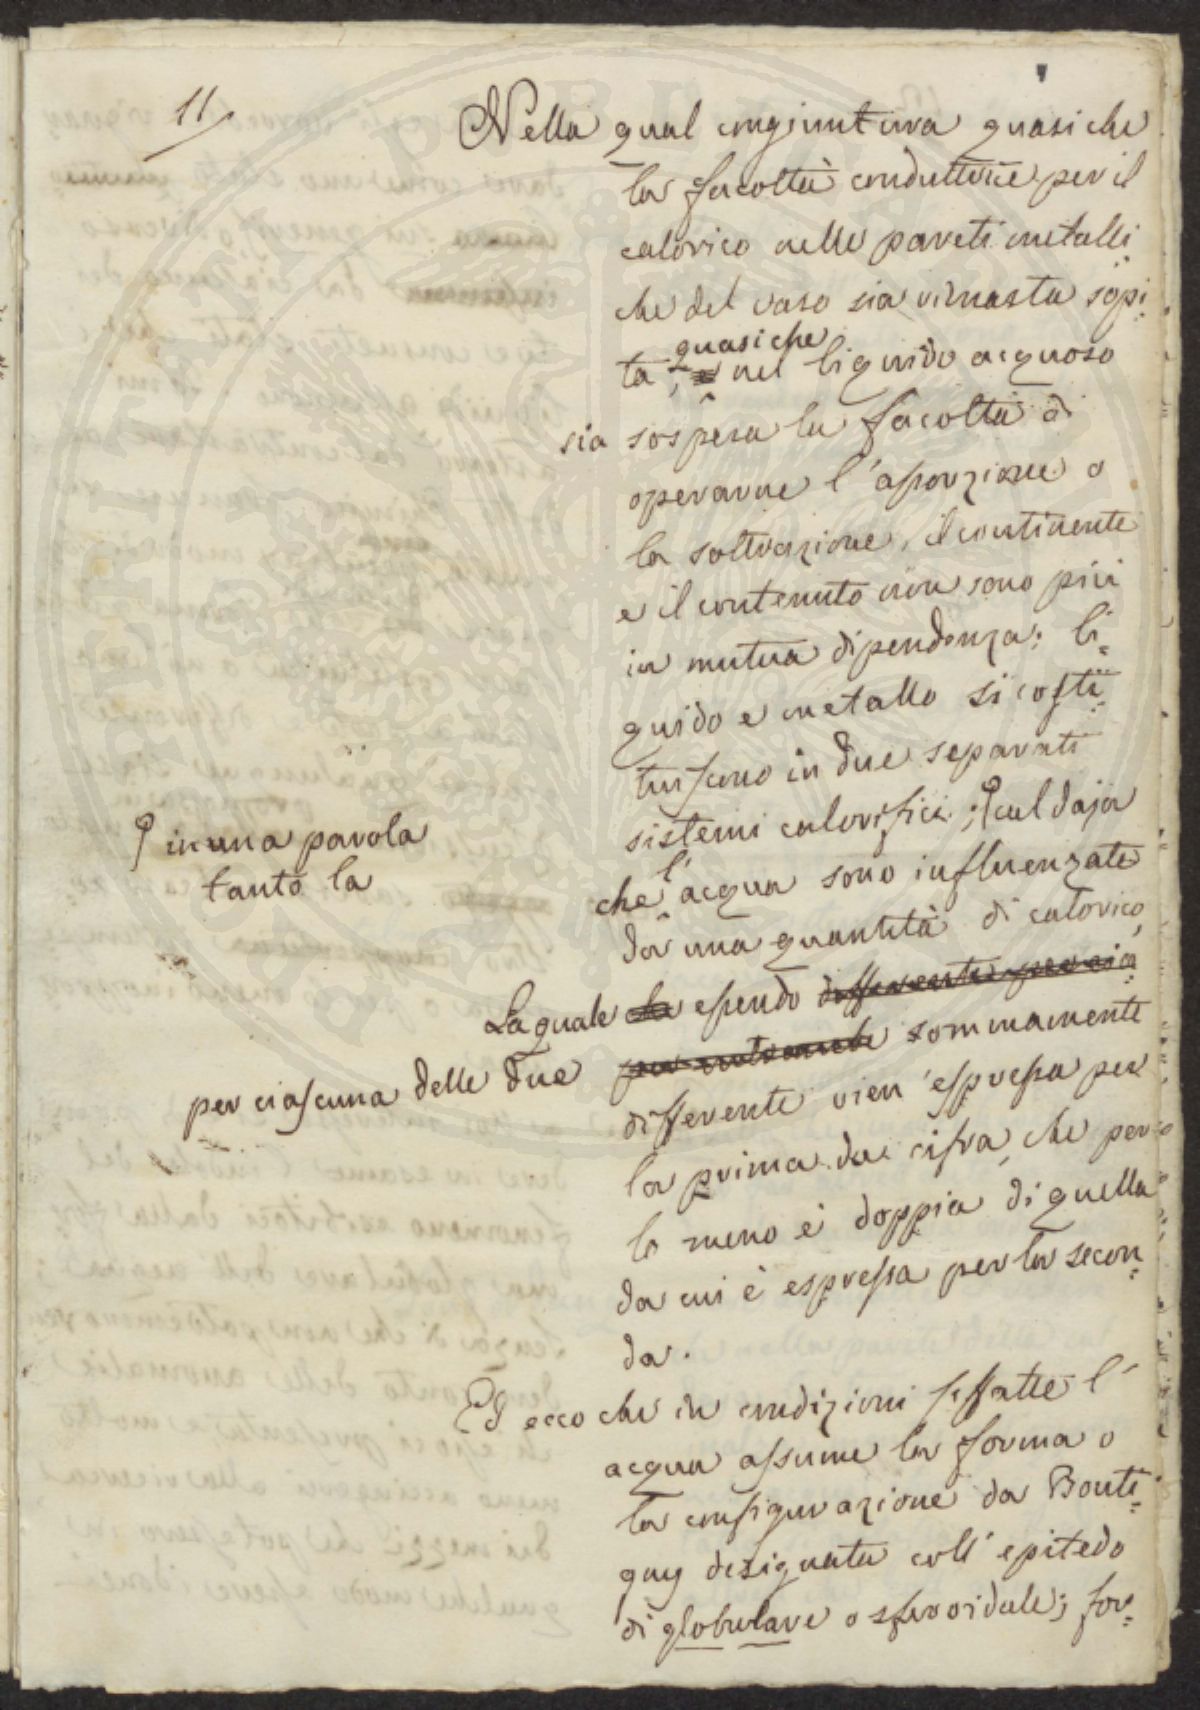 11
Nella qual congiuntura quasi che
la facoltà conduttrice per il
calorico nelle pareti metalli-
che del vaso sia rimasta sopi-
quasi che
ta, e nel liquido acquoso
sia sospesa la facoltà di
operarne l'assorzione o
la sottrazione, il continente
e il contenuto non sono più
in mutua dipendenza: li-
quido e metallo si costi-
tuiscono in due separati
sistemi calorifici; caldaja
in una parola
tanto la
che l'acqua sono influenzate
da una quantità di calorico,
La quale che essendo differente per cia-
per ciascuna delle due sommamente
differente vien espressa per
la prima da cifra, che per
lo meno è doppia di quella
da cui è espressa per la secon-
da.
Ed ecco che in condizioni siffatte l'
acqua assume la forma o
la configurazione da Bouti-
gny designata coll'epitedo
di globulare o sferoidale; for-